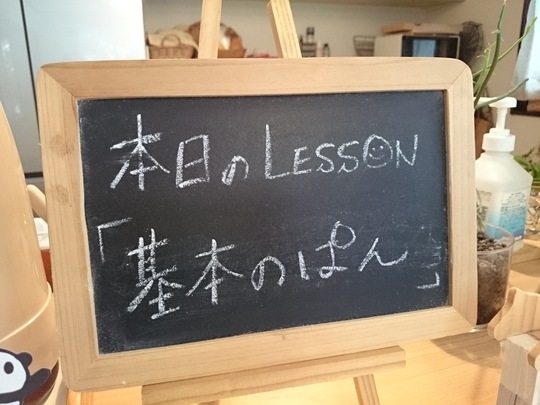 本日のLESSON
「基本のぱん」